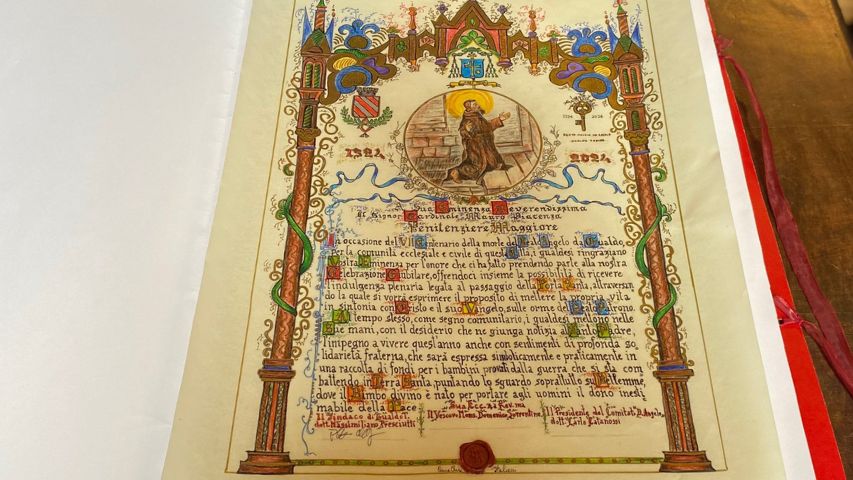 1324 2024
1324
2024
Sua Eminenza Reverendissima
Il Signor Cardinale Mauro Piacenza
Penitenziere Maggiore
In occasione del VII Centenario della morte del Beato Angelo da Gualdo,
per la comunità ecclesiale e civile di questa Città, i gualdesi ringraziano
Vostra Eminenza per l'onore che ci ha fatto prendendo parte alla nostra
Celebrazione Giubilare, offrendoci insieme la possibilità di ricevere
l'indulgenza plenaria legata al passaggio della Porta Santa, attraversan
do la quale si vorrà esprimere il proposito di mettere la propria vita
in sintonia con Cristo e il suo Vangelo, sulle orme del B. Patrono.
Al tempo stesso, come segno comunitario, i gualdesi mettono nelle
sue mani, con il desiderio che ne giunga notizia al Santo Padre,
l'impegno a vivere quest'anno anche con sentimenti di profonda so
lidarietà fraterna, che sarà espressa simbolicamente e praticamente in
una raccolta di fondi per i bambini provati dalla guerra che si sta com
battendo in Terra Santa, puntando lo sguardo soprattutto su Betlemme,
dove il Bimbo divino è nato per portare agli uomini il dono inesti
mabile della Pace
Il Sindaco di Gualdo T.
dott. Massimiliano Presciutti
Sua Ecc.za Rev.ma
Il Vescovo Mons. Domenico Sorrentino
Il Presidente del Comitato B. Angelo
dott. Carlo Catanossi